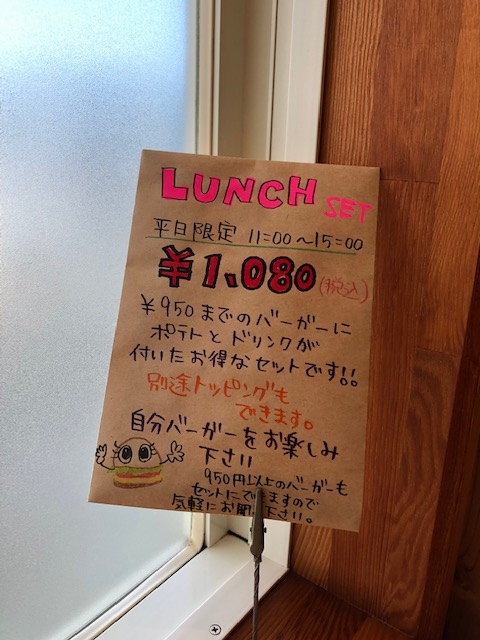 LUNCH SET
平日限定 11:00〜15:00
¥1,080(税込)
¥950までのバーガーに
ポテトとドリンクが
付いたお得なセットです!!
別途トッピングも
できます。
自分バーガーをお楽しみ
下さい!!
950円以上のバーガーも
セットにできますので
気軽にお聞き下さい。